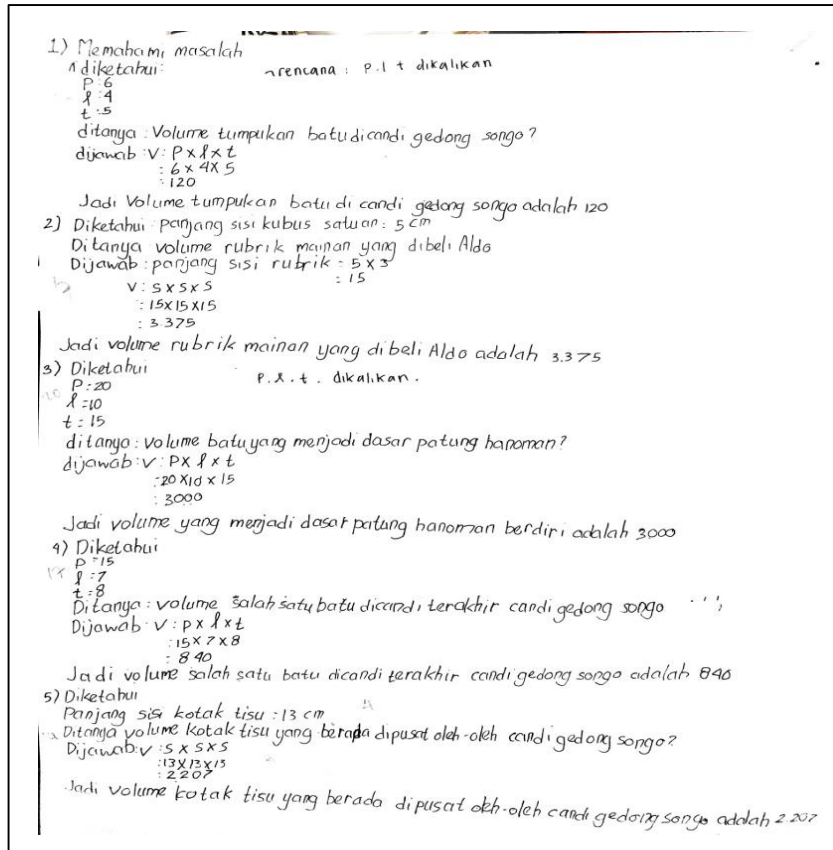 1) Memahami masalah
diketahui:
rencana : P.l t dikalikan
P:6
l:4
t:5
ditanya : Volume tumpukan batu dicandi gedong songo?
dijawab : V : P x l x t
: 6 x 4 x 5
: 120
Jadi Volume tumpukan batu di candi gedong songo adalah 120
2) Diketahui panjang sisi kubus satuan : 5 cm
Ditanya volume rubrik mainan yang dibeli Aldo
Dijawab : panjang sisi rubrik = 5 x 3
: 15
V : S x S x S
: 15 x 15 x 15
: 3.375
Jadi volume rubrik mainan yang dibeli Aldo adalah 3.375
3) Diketahui
P.l.t. dikalikan.
P:20
l=10
t:15
ditanya : volume batu yang menjadi dasar patung hanoman?
dijawab : V : P x l x t
:20 x 10 x 15
: 3000
Jadi volume yang menjadi dasar patung hanoman berdiri adalah 3000
4) Diketahui
P=15
l:7
t:8
Ditanya : volume salah satu batu dicandi terakhir candi gedong songo
Dijawab V : p x l x t
:15 x 7 x 8
: 840
Jadi volume salah satu batu dicandi terakhir candi gedong songo adalah 840
5) Diketahui
Panjang sisi kotak tisu : 13 cm
Ditanya volume kotak tisu yang berada dipusat oleh-oleh candi gedong songo?
Dijawab : V : S x S x S
:13 x 13 x 13
: 2207
Jadi volume kotak tisu yang berada dipusat oleh-oleh candi gedong songo adalah 2.207